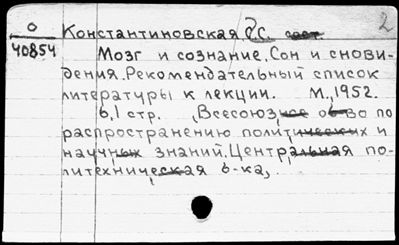 О
40854
Константиновская, О.С. сост 2
Мозг и сознание. Сон и снови-
дения. Рекомендательный список
литературы к лекции. М., 1952.
6,1 стр. Всесоюзное об-во по
распространению политических и
научных знаний. Центральная по-
литехническая б-ка,